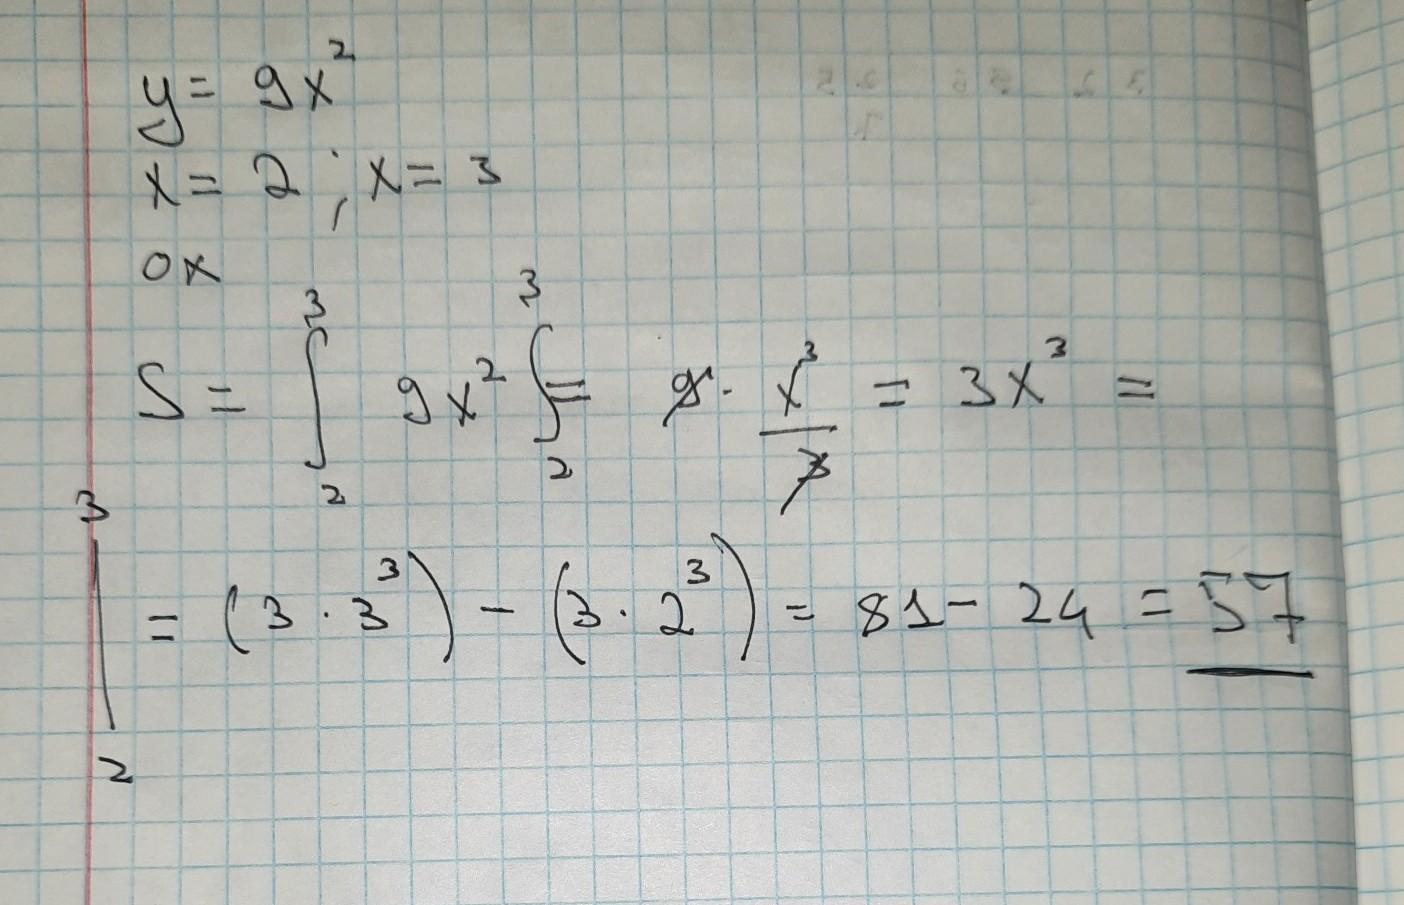 y = 9x²
x = 2 ; x = 3
ox
S = ∫₂³ 9x² ∫₂³ = 9 · x³/3 = 3x³ =
|₂³ = (3 · 3³) - (3 · 2³) = 81 - 24 = 57